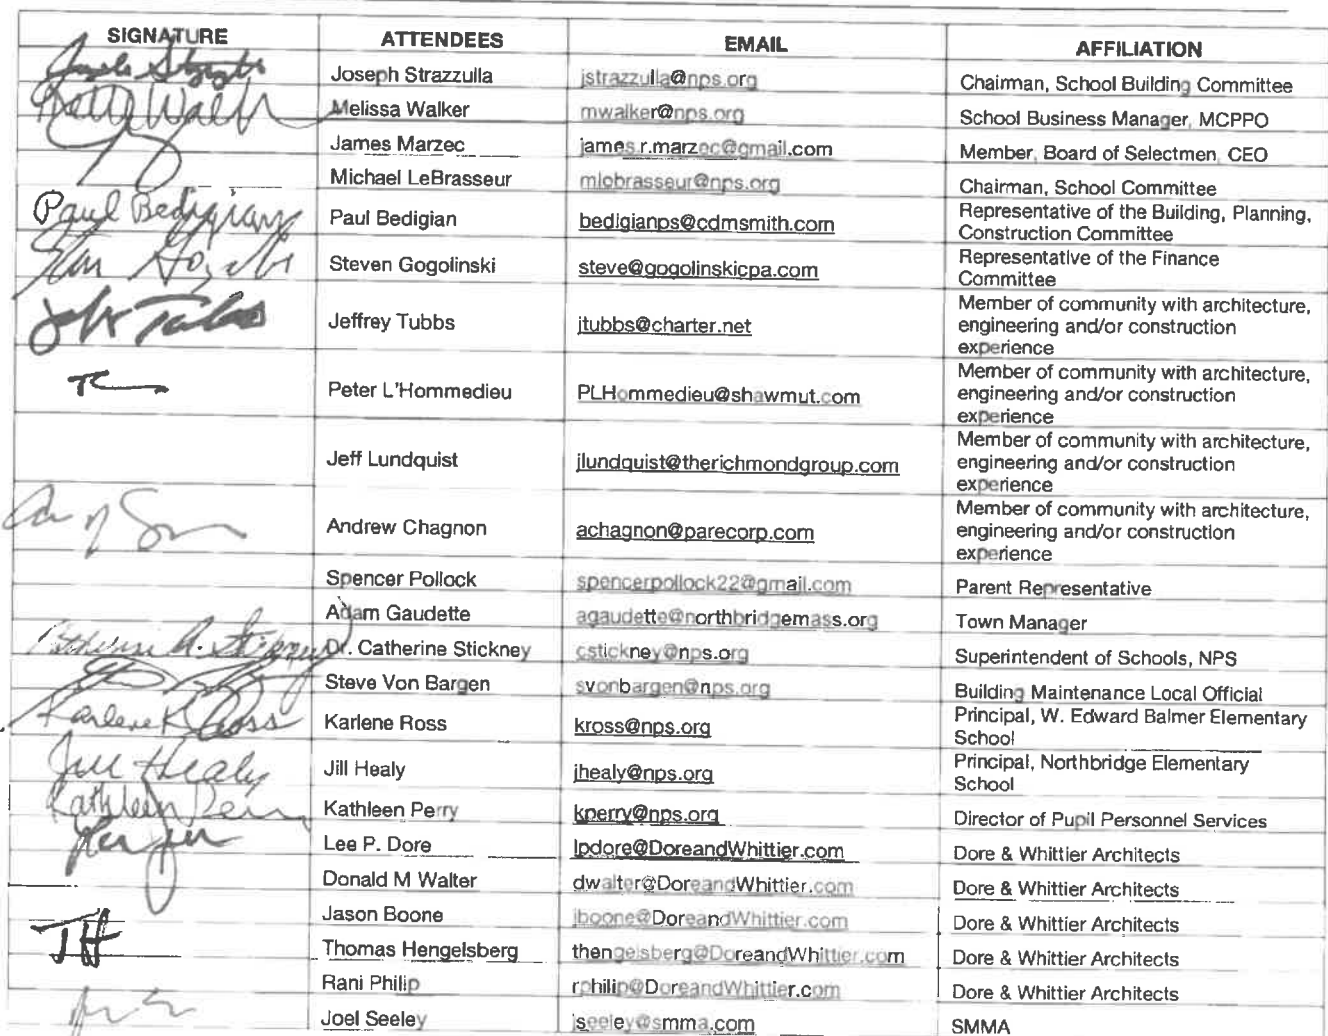 SIGNATURE ATTENDEES EMAIL AFFILIATION
Joseph Strazzulla jstrazzulla@nps.org Chairman, School Building Committee
Melissa Walker mwalker@nps.org School Business Manager, MCPPO
James Marzec james.r.marzec@gmail.com Member, Board of Selectmen, CEO
Michael LeBrasseur mlebrasseur@nps.org Chairman, School Committee
Paul Bedigian Paul Bedigian bedigianps@cdmsmith.com Representative of the Building, Planning,
Construction Committee
Steven Gogolinski steve@gogolinskicpa.com Representative of the Finance
Committee
Jeffrey Tubbs jtubbs@charter.net Member of community with architecture,
engineering and/or construction
experience
Peter L'Hommedieu PLHommedieu@shawmut.com Member of community with architecture,
engineering and/or construction
experience
Jeff Lundquist jlundquist@therichmondgroup.com Member of community with architecture,
engineering and/or construction
experience
Andrew Chagnon achagnon@parecorp.com Member of community with architecture,
engineering and/or construction
experience
Spencer Pollock spencerpollock22@gmail.com Parent Representative
Adam Gaudette agaudette@northbridgemass.org Town Manager
Dr. Catherine Stickney cstickney@nps.org Superintendent of Schools, NPS
Steve Von Bargen svonbargen@nps.org Building Maintenance Local Official
Karlene K Ross Karlene Ross kross@nps.org Principal, W. Edward Balmer Elementary
School
Jill Healy Jill Healy jhealy@nps.org Principal, Northbridge Elementary
School
Kathleen Perry Kathleen Perry kperry@nps.org Director of Pupil Personnel Services
Lee P. Dore lpdore@DoreandWhittier.com Dore & Whittier Architects
Donald M Walter dwalter@DoreandWhittier.com Dore & Whittier Architects
Jason Boone jboone@DoreandWhittier.com Dore & Whittier Architects
TH Thomas Hengelsberg thengelsberg@DoreandWhittier.com Dore & Whittier Architects
Rani Philip rphilip@DoreandWhittier.com Dore & Whittier Architects
Joel Seeley jseeley@smma.com SMMA